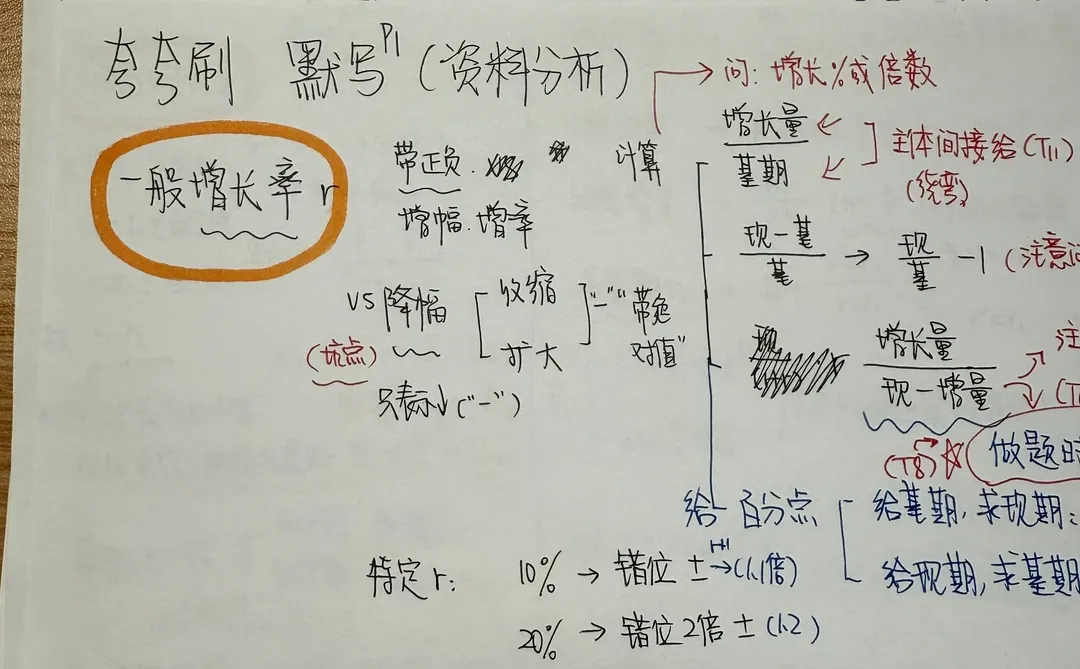 夸夸刷 默写P1（资料分析）
一般增长率 r
带正负.
增幅.增率
VS 降幅 [收缩 扩大] "—" "带绝对值"
(坑点)
只表示↓("—")
计算
→ 问：增长%或倍数
增长量/基期
] 主体间接给(T11)
(绕弯)
现—基/基 → 现/基 —1 (注意问
增长量/现—增量
注
(T
(T8) ☆ 做题时
给百分点
给基期,求现期:
给现期,求基期
特定r：
10% → 错位 ± → (1.1倍)
20% → 错位2倍 ± (1.2)